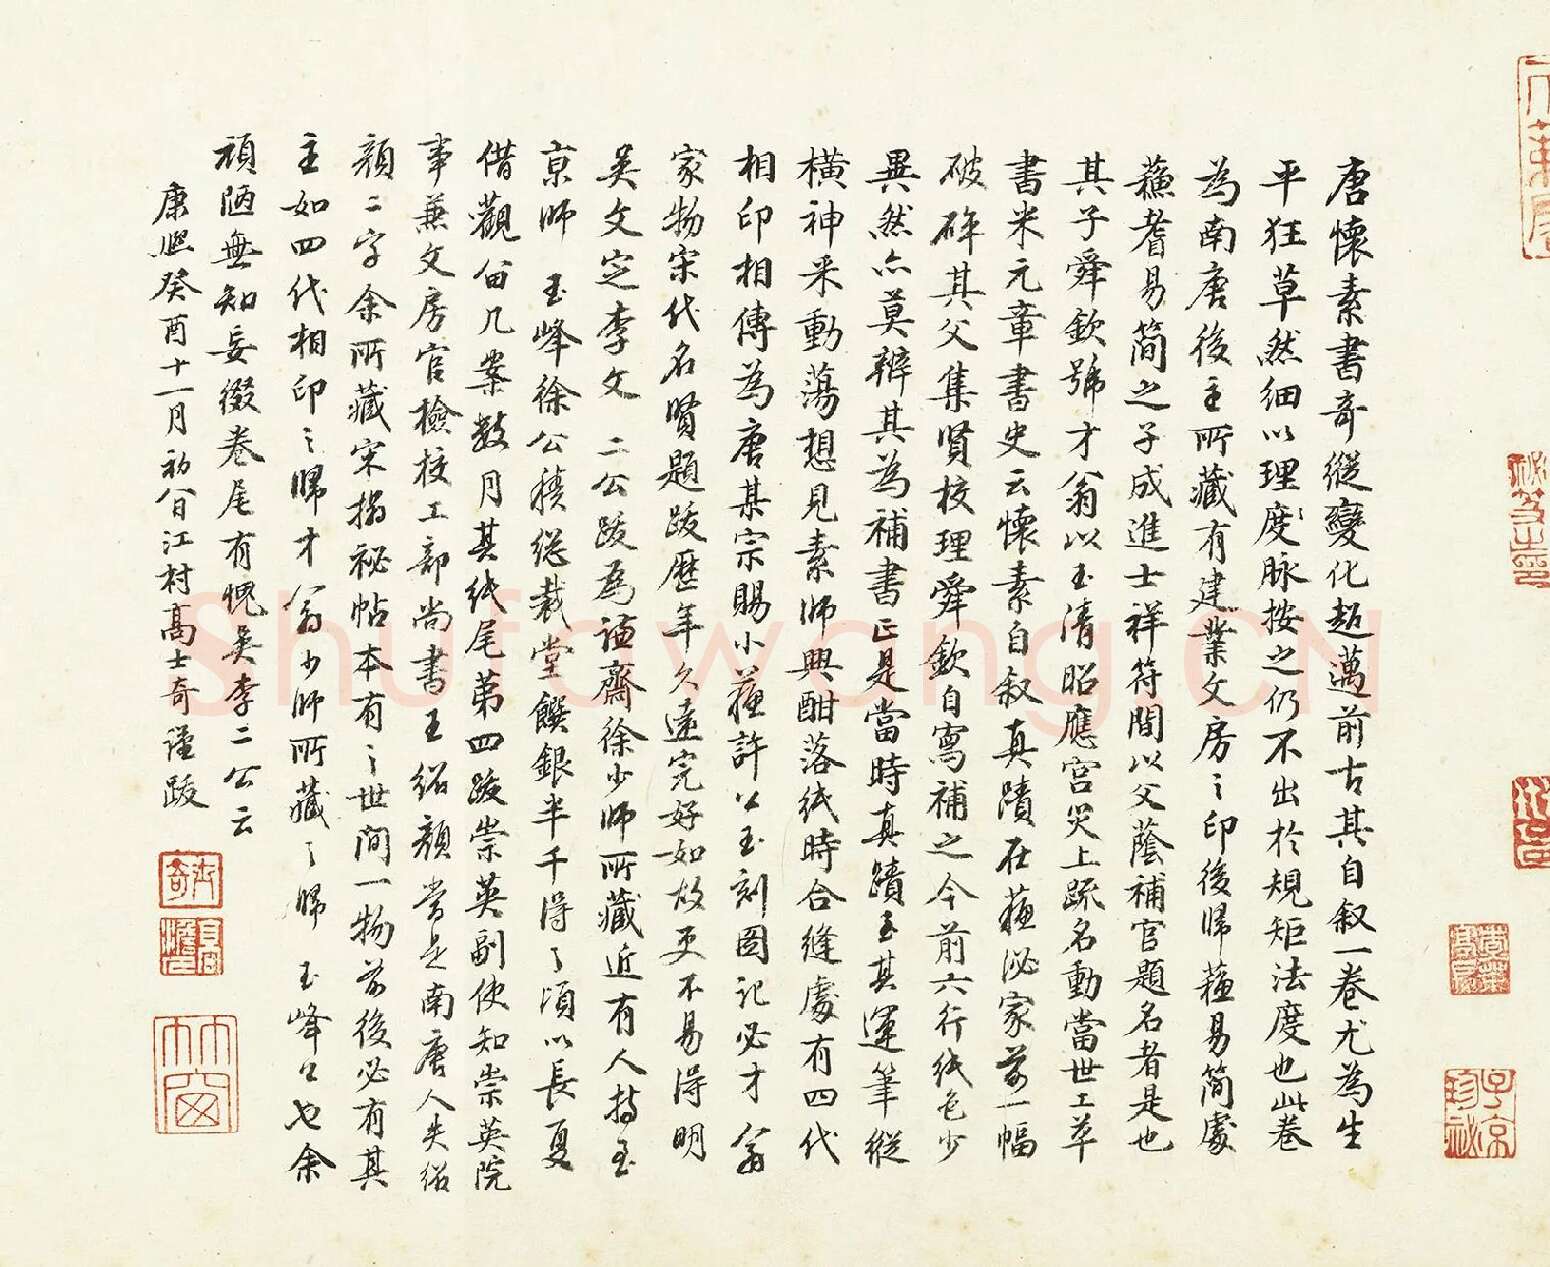 唐懷素書奇縱變化超邁前古其自叙一卷尤為生
平狂草然細以理度脉按之仍不出於規矩法度也此卷
為南唐後主所藏有建業文房之印後歸蘓易簡處
蘓耆易簡之子成進士祥符間以父蔭補官題名者是也
其子舜欽號才翁以玉清昭應宫災上疏名動當世工草
書米元章書史云懷素自叙真蹟在蘓泌家前一幅
破碎其父集賢校理舜欽自寫補之今前六行紙色少
異然亦莫辨其為補書正是當時真蹟至其運筆縱
橫神采動蕩想見素師興酣落紙時合縫處有四代
相印相傳為唐某宗賜小蘓許公玉刻圖記必才翁
家物宋代名賢題跋歷年久遠完好如故更不易得明
吳文定李文 二公跋為謙齋徐少師所藏近有人持至
京師 玉峰徐公積總裁堂饌銀半千得之頃以長夏
借觀留几案數月其紙尾第四跋崇英副使知崇英院
事兼文房官檢校工部尚書王紹顏當是南唐人失紹
顏二字余所藏宋搨祕帖本有之世間一物前後必有其
主如四代相印之歸才翁少師所藏之歸 玉峰公也余
頑陋無知妄綴卷尾有愧吳李二公云
康熙癸酉十一月初八日江村高士奇謹跋
士奇
竹窗
子京珍祕
Shufawang.CN